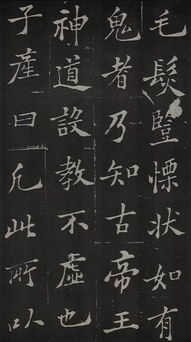 毛髮豎慄状如有
鬼者乃知古帝王
神道設教不虛也
子產曰凡此所以